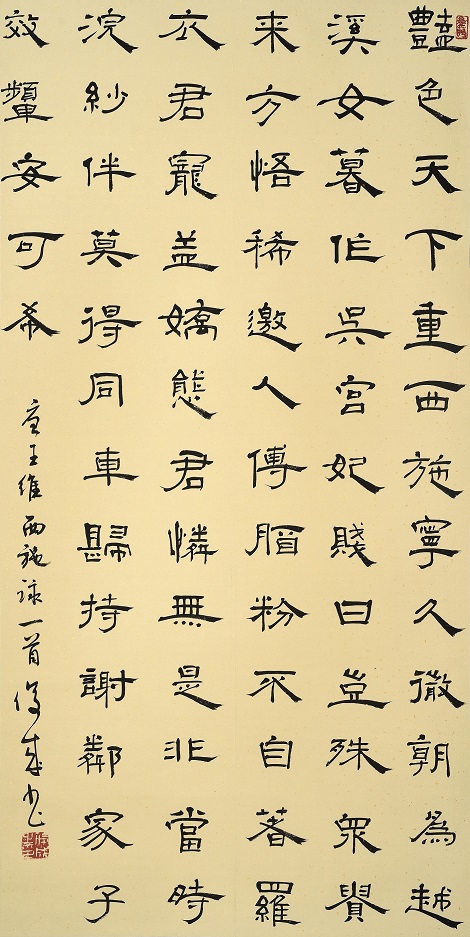 豔色天下重西施寧久微朝為越
溪女暮作吳宮妃賤日豈殊眾貴
来方悟稀邀人傅脂粉不自著羅
衣君寵益嬌態君憐無是非當時
浣紗伴莫得同車歸持謝鄰家子
效顰安可希
唐王維西施詠一首 成书